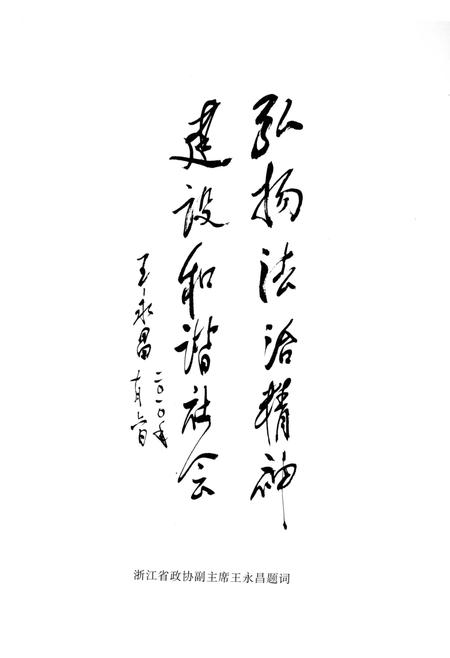 弘扬法治精神
建设和谐社会
王永昌
二〇一〇年
浙江省政协副主席王永昌题词